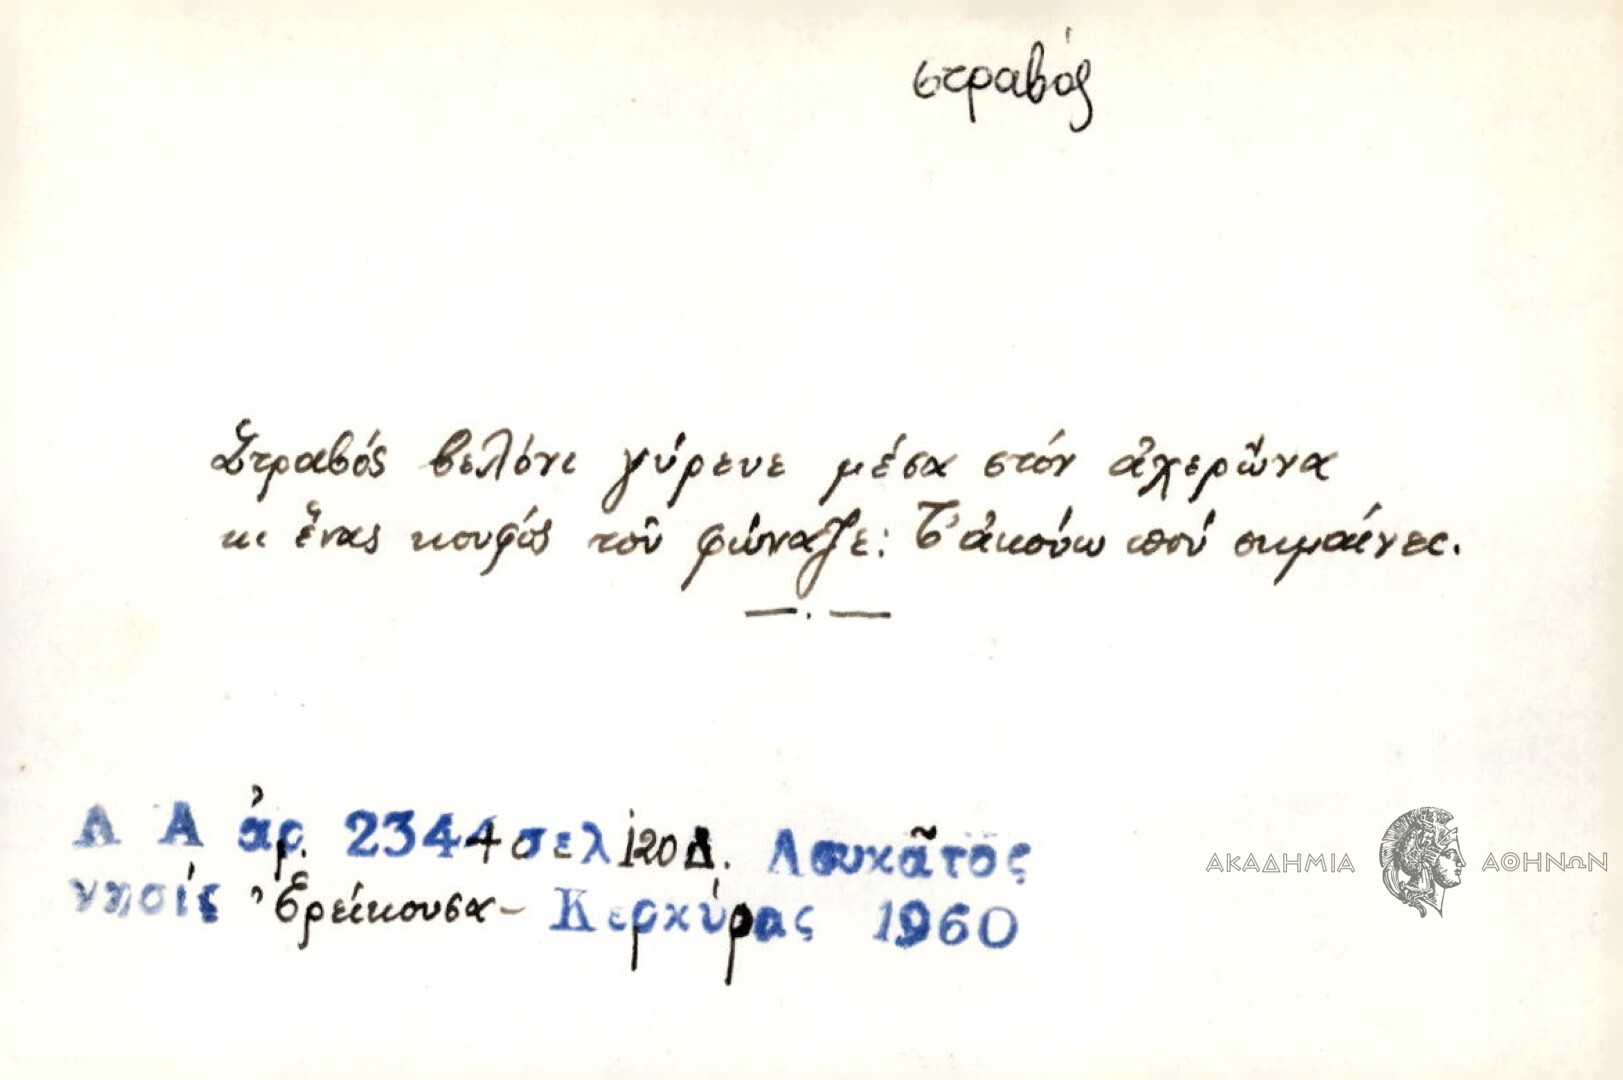 στραβός
Στραβός βελόνι γύρευε μέσα στόν ἀχερῶνα
κι ἕνας κουφός τοῦ φώναζε: Τ' ἀκούω πού σημαίνει.
Λ Α ἀρ. 2344 σελ 120 Δ. Λουκᾶτος
νησίς Ἐρείκουσα - Κερκύρας 1960
ΑΚΑΔΗΜΙΑ ΑΘΗΝΩΝ